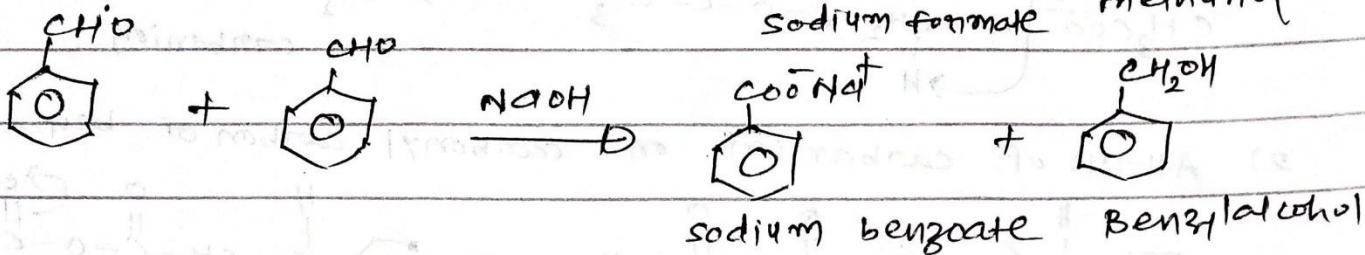 sodium formate methanol
CHO CHO
+ NaOH COO⁻Na⁺ + CH₂OH
sodium benzoate Benzylalcohol